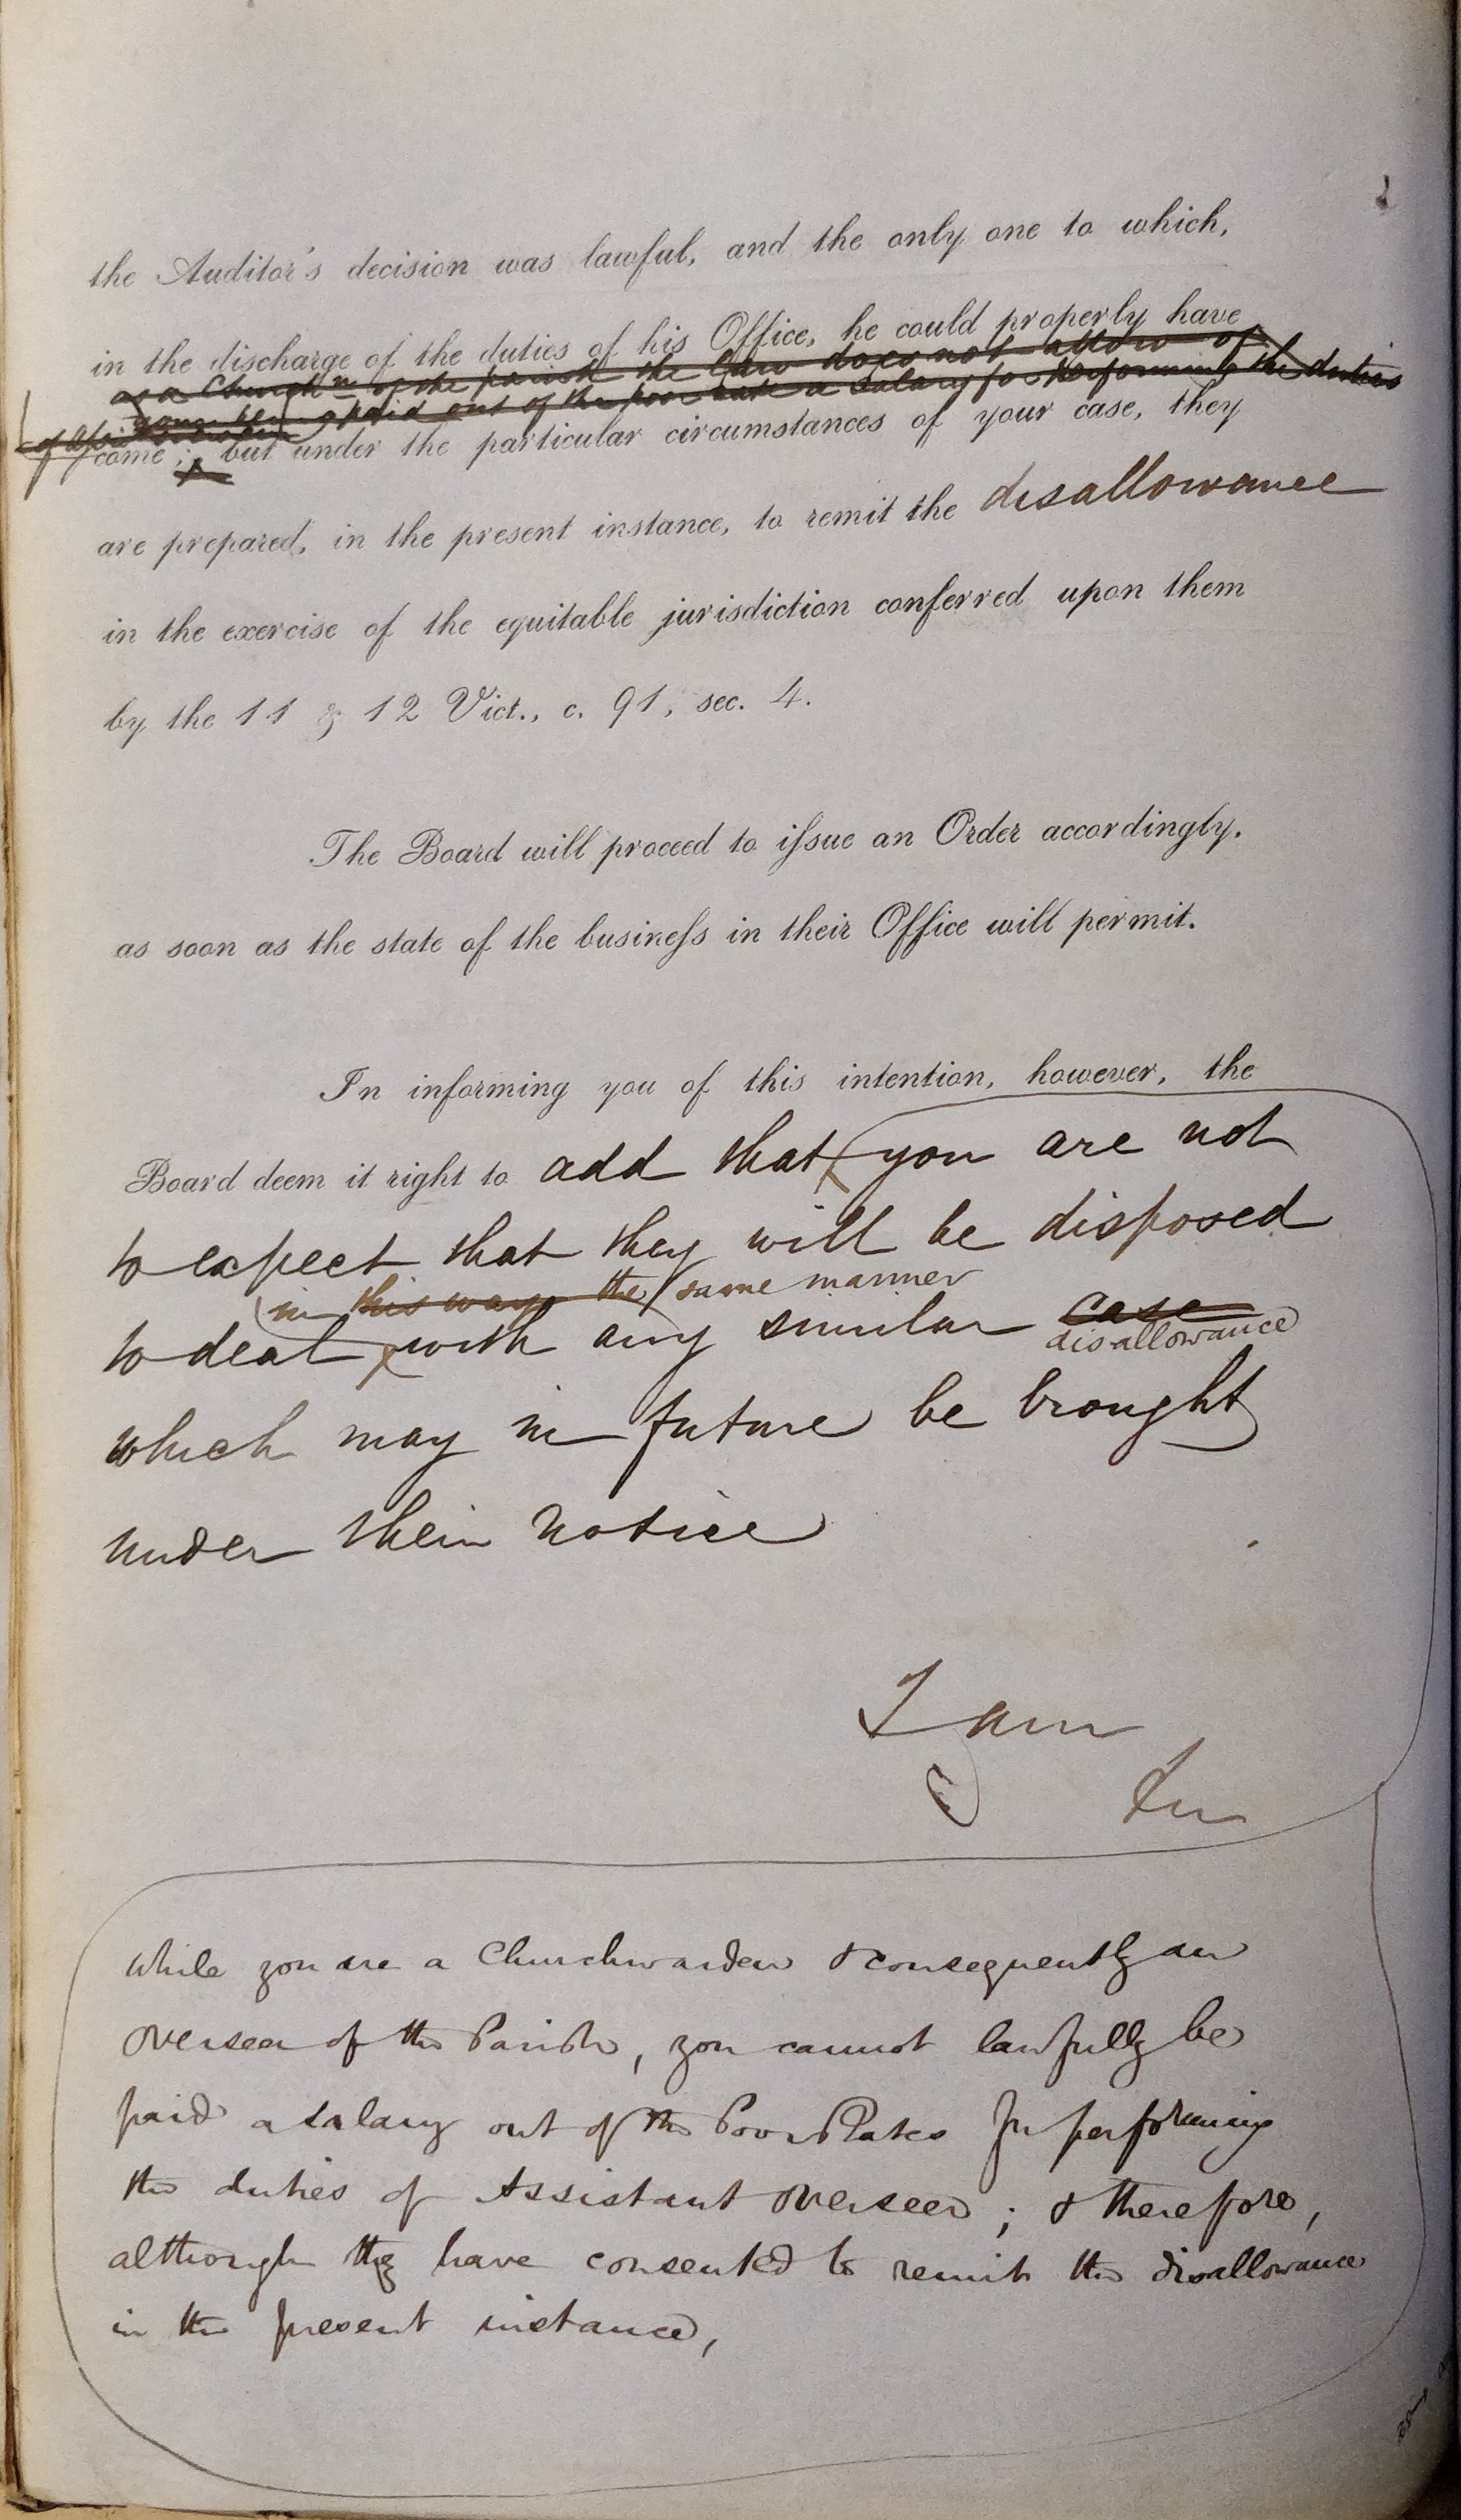 the Auditor's decision was lawful, and the only one to which,
in the discharge of the duties of his Office, he could properly have
as a Churchn of the parish the law does not allow of
your being paid out of the poor rate a Salary for performing the duties
of Assist
come; but under the particular circumstances of your case, they
are prepared, in the present instance, to remit the disallowance
in the exercise of the equitable jurisdiction conferred upon them
by the 11 & 12 Vict., c. 91, sec. 4.
The Board will proceed to issue an Order accordingly,
as soon as the state of the business in their Office will permit.
In informing you of this intention, however, the
Board deem it right to add that you are not
to expect that they will be disposed
in this way the same manner
to deal with any similar case
disallowance
which may in future be brought
under their notice
I am
&c
While you are a Churchwarden & consequently an
Overseer of the Parish, you cannot lawfully be
paid a salary out of the Poor Rates for performing
the duties of Assistant Overseer; & therefore,
although they have consented to remit the disallowance
in the present instance,